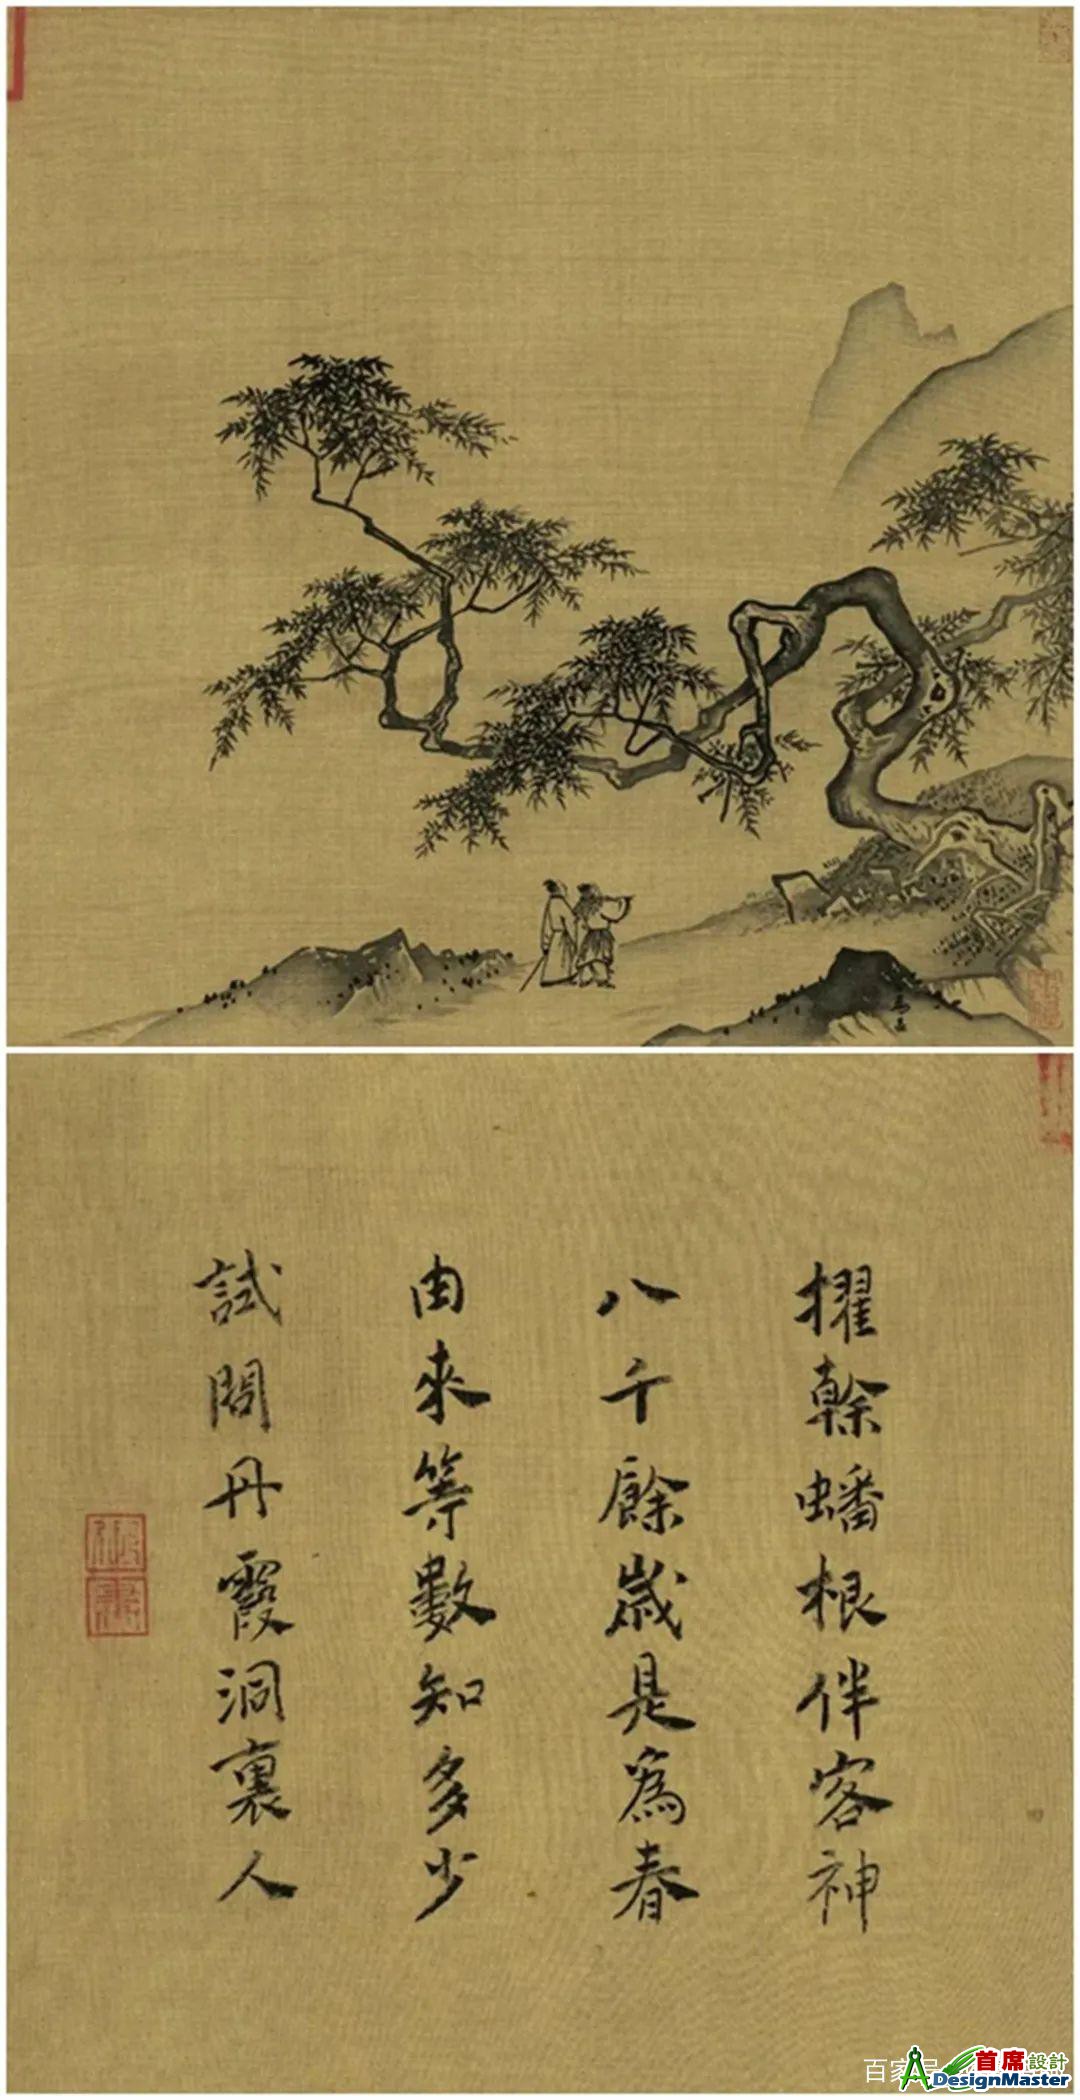 馬遠
擢榦蟠根伴客神
八千餘歲是爲春
由來等數知多少
試問丹霞洞裏人
百家号
首席設計
ADesignMaster